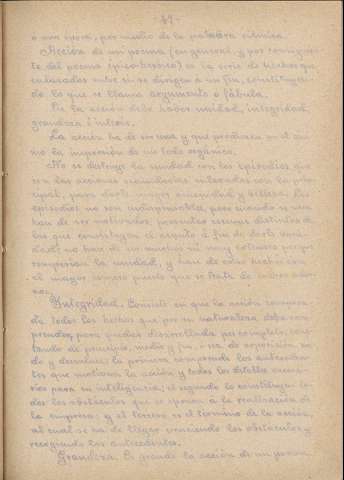 67-
o una época, por medio de la palabra rítmica.
Acción de un poema (en general, y por consiguien-
te del poema épico-heroico) es la serie de hechos que
enlazados entre sí se dirigen a un fin, constituyen-
do lo que se llama argumento o fábula.
En la acción debe haber unidad, integridad,
grandeza é interés.
La acción ha de ser una y que produzca en el áni-
mo la impresión de un todo orgánico.
No se destruye la unidad con los episodios que
son las acciones secundarias enlazadas con la prin-
cipal, para darle mayor amenidad y belleza. Los
episodios no son indispensables, pero cuando se usan
han de ser motivados, presentar asuntos distintos de
los que constituyen el asunto á fin de darle varie-
dad; no han de ser muchos ni muy extensos porque
romperían la unidad, y han de estar hechos con
el mayor esmero puesto que se trata de un ador-
no.
Integridad. Consiste en que la acción compren-
da todos los hechos que por su naturaleza deba com-
prender, para quedar desarrollada por completo, cons-
tando de principio, medio y fin, o sea de exposición, nu-
do y desenlace; la primera comprende los anteceden-
tes que motivan la acción y todos los detalles necesa-
rios para su inteligencia; el segundo lo constituyen to-
dos los obstáculos que se oponen á la realización de
la empresa; y el tercero es el término de la acción,
al cual se ha de llegar venciendo los obstáculos y
recogiendo los antecedentes.
Grandeza. Es grande la acción de un poema,